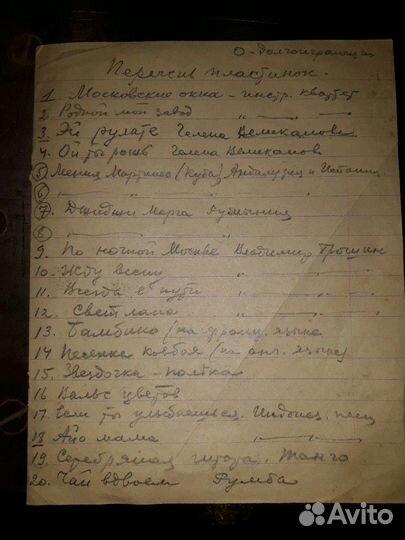 О - долгоиграющие
Перечень пластинок.
1 Московские окна - инстр. квартет
2. Родной мой завод " — " —
3. Эй рулате Гелена Великанова
4. Ой ты рожь Гелена Великанова
5 (Куба) и
6 — " —
7. Джорджи Марга Румыния
8 — " —
9. По ночной Москве Владимир Трошин
10. Жду весну " — " —
11. Всегда в пути " — " —
12. Светлана " — " —
13. Бамбино (на франц. языке
14 Песенка ковбоя (на анг. языке)
15. Звездочка - полька
16 Вальс цветов
17. Если ты улыбнешься. Индонез. песн
18 Айо мама — " — " —
19. Серебряная гитара. Танго
20. Чай вдвоем Румба
Avito